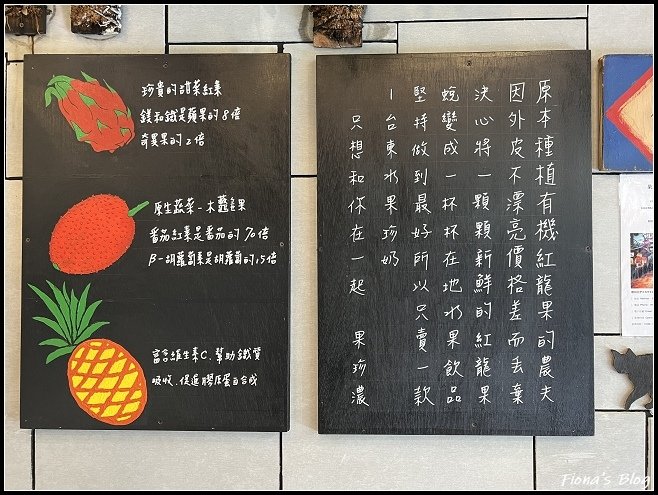 珍貴的甜菜紅素
鎂和鐵是蘋果的8倍
奇異果的2倍
原生蔬菜-木虌果
番茄紅素是番茄的70倍
β-胡蘿蔔素是胡蘿蔔的15倍
富含維生素C、幫助鐵質
吸收、促進膠原蛋白合成
原本種植有機紅龍果的農夫
因外皮不漂亮價格差而丟棄
決心將一顆顆新鮮的紅龍果
蛻變成一杯杯在地水果飲品
堅持做到最好所以只賣一款
-台東水果珍奶
只想和你在一起 果珍濃
Fiona's Blog